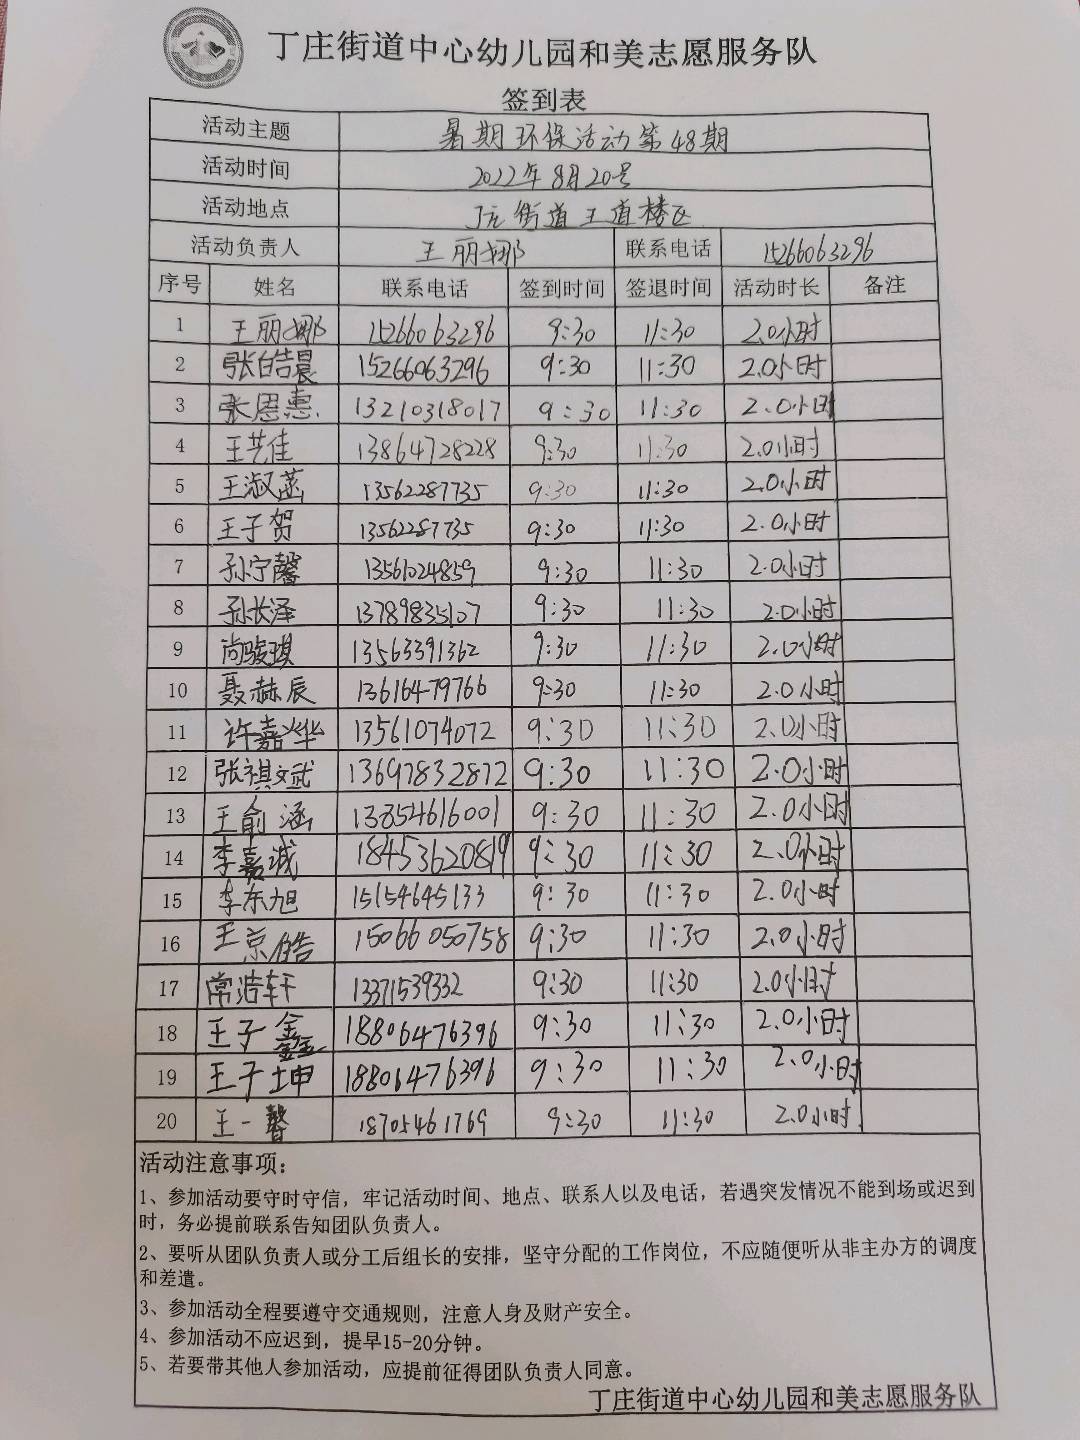 丁庄街道中心幼儿园和美志愿服务队
签到表
活动主题 暑期环保活动第48期
活动时间 2022年8月20号
活动地点 丁庄街道王道楼区
活动负责人 王丽娜 联系电话 15266063296
序号 姓名 联系电话 签到时间 签退时间 活动时长 备注
1 王丽娜 15266063296 9:30 11:30 2.0小时
2 张皓晨 15266063296 9:30 11:30 2.0小时
3 张恩惠 13210318017 9:30 11:30 2.0小时
4 王艺佳 13864728228 9:30 11:30 2.0小时
5 王淑菡 13562287735 9:30 11:30 2.0小时
6 王子贺 13562287735 9:30 11:30 2.0小时
7 孙宁馨 13561024859 9:30 11:30 2.0小时
8 孙长泽 13789835107 9:30 11:30 2.0小时
9 尚骏琪 13563391362 9:30 11:30 2.0小时
10 聂赫辰 13616479766 9:30 11:30 2.0小时
11 许嘉烨 13561074072 9:30 11:30 2.0小时
12 张祺斌 13697832872 9:30 11:30 2.0小时
13 王俞涵 13854616001 9:30 11:30 2.0小时
14 李嘉诚 18453620819 9:30 11:30 2.0小时
15 李东旭 15154645133 9:30 11:30 2.0小时
16 王京皓 15066050758 9:30 11:30 2.0小时
17 常浩轩 13371539332 9:30 11:30 2.0小时
18 王子鑫 18806476396 9:30 11:30 2.0小时
19 王子坤 18806476396 9:30 11:30 2.0小时
20 王一馨 18705461769 9:30 11:30 2.0小时
活动注意事项：
1、参加活动要守时守信，牢记活动时间、地点、联系人以及电话，若遇突发情况不能到场或迟到
时，务必提前联系告知团队负责人。
2、要听从团队负责人或分工后组长的安排，坚守分配的工作岗位，不应随便听从非主办方的调度
和差遣。
3、参加活动全程要遵守交通规则，注意人身及财产安全。
4、参加活动不应迟到，提早15-20分钟。
5、若要带其他人参加活动，应提前征得团队负责人同意。
丁庄街道中心幼儿园和美志愿服务队